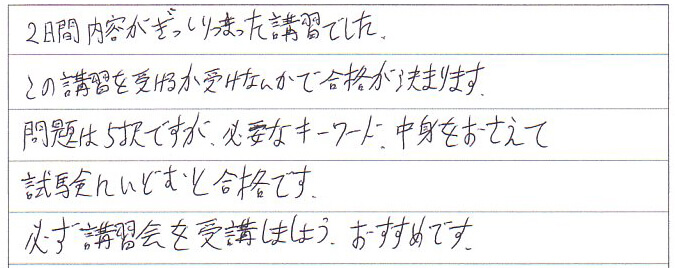 2日間内容がぎっしりつまった講習でした.
この講習を受けるか受けないかで合格が決まります.
問題は5択ですが、必要なキーワード、中身をおさえて
試験にいどむと合格です.
必ず講習会を受講しましょう. おすすめです.